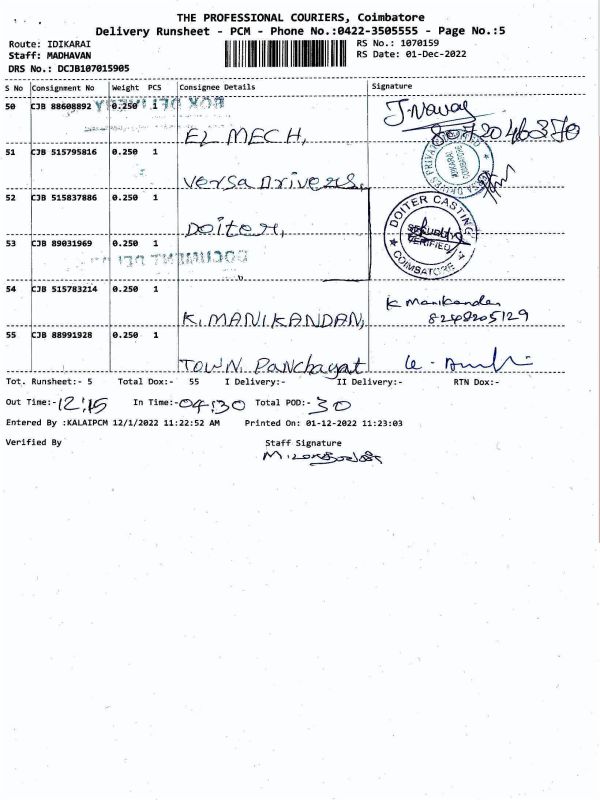 THE PROFESSIONAL COURIERS, Coimbatore
Delivery Runsheet - PCM - Phone No.:0422-3505555 - Page No.:5
Route: IDIKARAI RS No.: 1070159
Staff: MADHAVAN RS Date: 01-Dec-2022
DRS No.: DCJB107015905
S No Consignment No Weight PCS Consignee Details Signature
50 CJB 88608892 0.250 1
EL MECH,
51 CJB 515795816 0.250 1
Versa Drivers,
52 CJB 515837886 0.250 1
Doiter,
DOITER CASTING
VERIFIED
COIMBATORE
53 CJB 89031969 0.250 1
54 CJB 515783214 0.250 1 K Manikandan
8248205129
K. MANIKANDAN,
55 CJB 88991928 0.250 1
TOWN Panchayat
Tot. Runsheet:- 5 Total Dox:- 55 I Delivery:- II Delivery:- RTN Dox:-
Out Time:- 12:15 In Time:- 04:30 Total POD:- 30
Entered By :KALAIPCM 12/1/2022 11:22:52 AM Printed On: 01-12-2022 11:23:03
Verified By Staff Signature